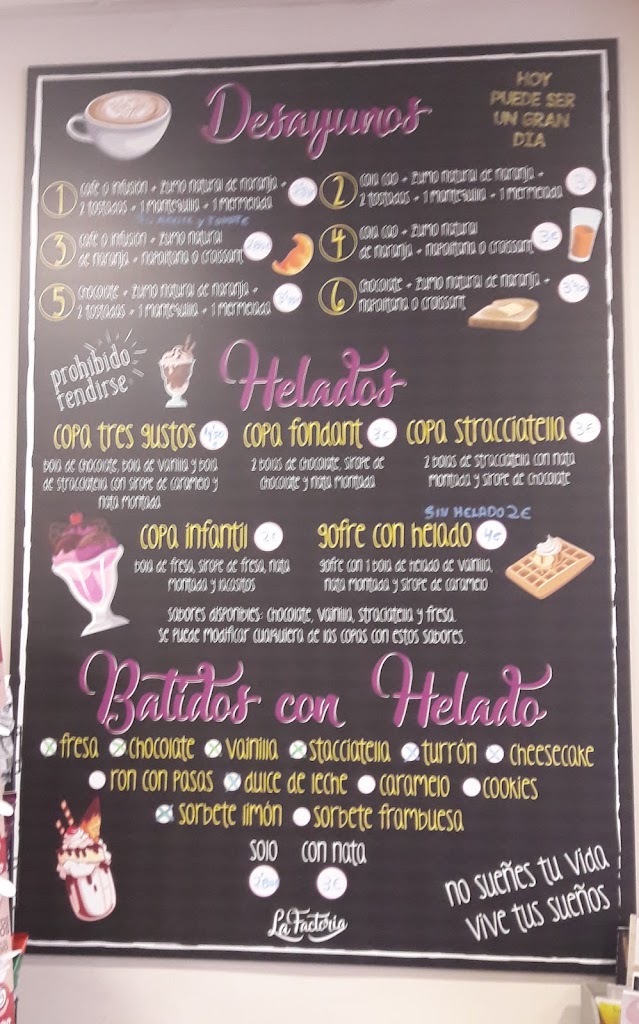 Desayunos
HOY
PUEDE SER
UN GRAN
DIA
1 café o infusión + zumo natural de naranja +
2 tostadas + 1 mantequilla + 1 mermelada
2 cola cao + zumo natural de naranja +
2 tostadas + 1 mantequilla + 1 mermelada
3 café o infusión + zumo natural
de naranja + napolitana o croissant
4 cola cao + zumo natural
de naranja + napolitana o croissant 3€
5 chocolate + zumo natural de naranja +
2 tostadas + 1 mantequilla + 1 mermelada
6 chocolate + zumo natural de naranja +
napolitana o croissant
prohibido
rendirse
Helados
copa tres gustos
bola de chocolate, bola de vainilla y bola
de stracciatella con sirope de caramelo y
nata montada
copa fondant 3€
2 bolas de chocolate, sirope de
chocolate y nata montada
copa stracciatella 3€
2 bolas de stracciatella con nata
montada y sirope de chocolate
copa infantil 2€
bola de fresa, sirope de fresa, nata
montada y lacasitos
SIN HELADO 2€
gofre con helado 4€
gofre con 1 bola de helado de vainilla,
nata montada y sirope de caramelo
sabores disponibles: chocolate, vainilla, straciatella y fresa.
se puede modificar cualquiera de las copas con estos sabores.
Batidos con Helado
fresa chocolate vainilla stacciatella turrón cheesecake
ron con pasas dulce de leche caramelo cookies
sorbete limón sorbete frambuesa
solo con nata
3€
La Factoria
no sueñes tu vida
vive tus sueños